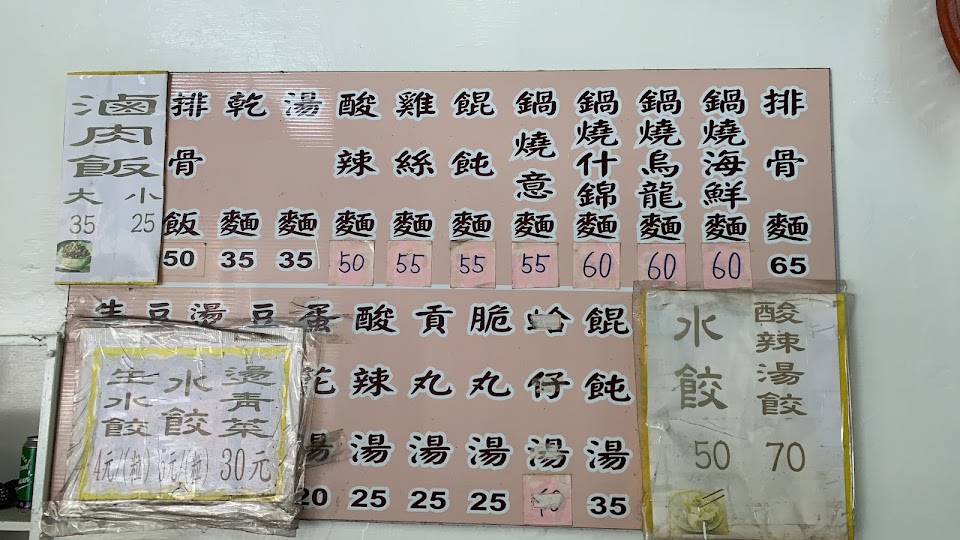 滷肉飯
大 小
35 25
排骨飯 50
乾麵 35
湯麵 35
酸辣麵 50
雞絲麵 55
餛飩麵 55
鍋燒意麵 55
鍋燒什錦麵 60
鍋燒烏龍麵 60
鍋燒海鮮麵 60
排骨麵 65
生
豆
燙
豆
蛋花湯 20
酸辣湯 25
貢丸湯 25
脆丸湯 25
蛤仔湯
餛飩湯 35
生水餃 4元/(粒)
水餃 元/(粒)
燙青菜 30元
水餃 50
酸辣湯餃 70